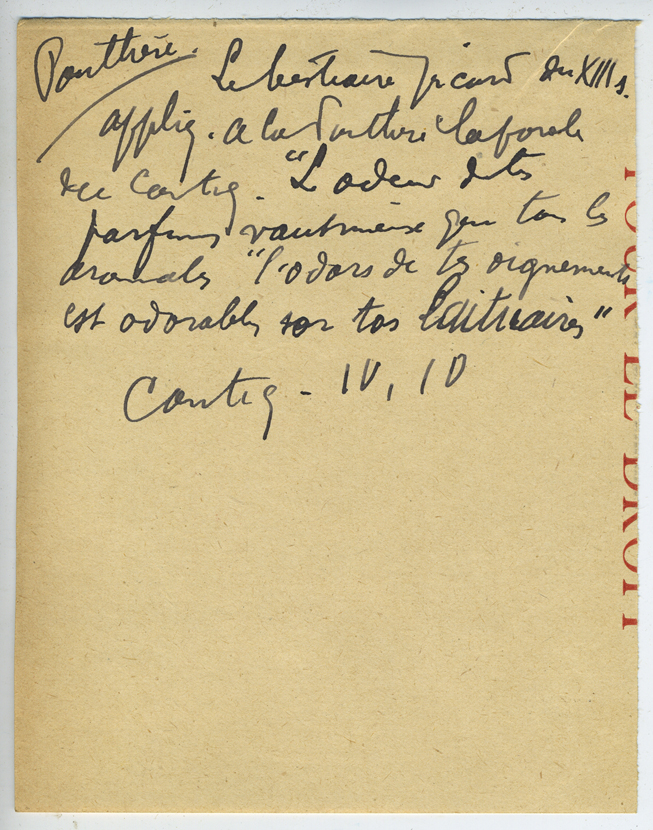 Panthère.
Le bestiaire picard du XIIIs.
appliq. à la Panthère la parole
du Cantiq. "L'odeur de tes
parfums vaut mieux que tous les
aromates "l'odors de tes oignements
est odorables sor tos laituaires"
Cantiq - IV, 10
POUR LE DROIT